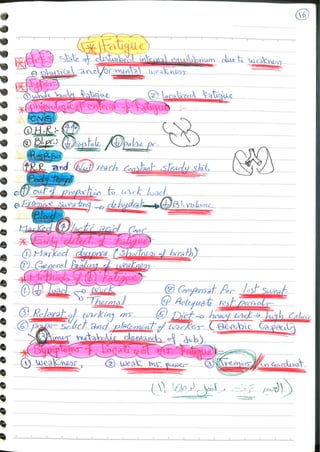 16
* Fatigue
* def: state of disturbed internal equilibrium due to weakness
physical and/or mental weakness
* Types
① whole body fatigue ② localized fatigue
* physiological criteria of fatigue
CNS
① H.R: ↑↑
② Bl.pr: ↑ systole / ↓ pulse pr.
Resp.
↑ R.R and not reach constant steady state
Body temp
↑ out of proportion to work load
Excessive sweating → dehydrat → ↓ Bl. volume
Blood
Marked ↑ lactic acid Conc
* Early detect of fatigue
① Marked dyspnea (shortness of breath)
② General feeling of weakness
* Methods of ↓ fatigue
① ↓ load → work
→ Thermal
② Compensat. for lost sweat
③ Rotorat. of working ms.
④ Adequate rest periods
⑤ Diet → heavy work → high Calorie
⑥ proper select and placement of worker (Aerobic Capacity
metabolic demands of Job)
* Symptoms of Localized ms. fatigue
① weakness, ② weak ms. power ③ Tremors / incoordinat.